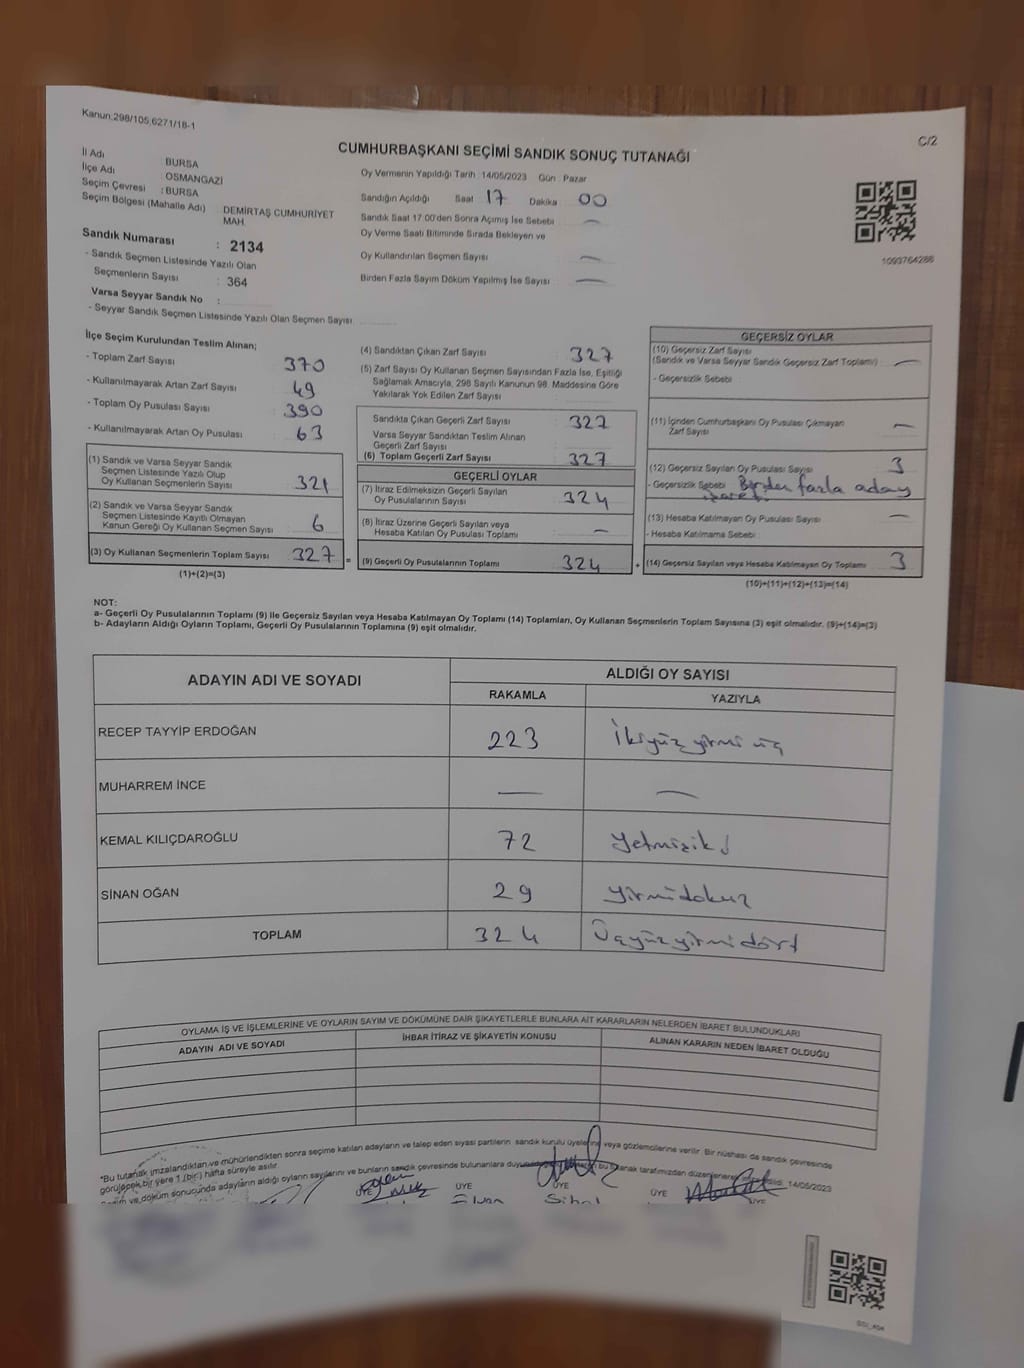 Kanun:298/105,6271/18-1
C/2
CUMHURBAŞKANI SEÇİMİ SANDIK SONUÇ TUTANAĞI
İl Adı BURSA
İlçe Adı OSMANGAZİ
Seçim Çevresi : BURSA
Seçim Bölgesi (Mahalle Adı) : DEMİRTAŞ CUMHURİYET
MAH.
Sandık Numarası : 2134
- Sandık Seçmen Listesinde Yazılı Olan
Seçmenlerin Sayısı : 364
Varsa Seyyar Sandık No :
- Seyyar Sandık Seçmen Listesinde Yazılı Olan Seçmen Sayısı
Oy Vermenin Yapıldığı Tarih : 14/05/2023 Gün : Pazar
Sandığın Açıldığı Saat 17 Dakika 00
Sandık Saat 17:00'den Sonra Açımış İse Sebebi —
Oy Verme Saati Bitiminde Sırada Bekleyen ve
Oy Kullandırılan Seçmen Sayısı —
Birden Fazla Sayım Döküm Yapılmış İse Sayısı —
1093764286
İlçe Seçim Kurulundan Teslim Alınan;
- Toplam Zarf Sayısı 370
- Kullanılmayarak Artan Zarf Sayısı 49
- Toplam Oy Pusulası Sayısı 390
- Kullanılmayarak Artan Oy Pusulası 63
(1) Sandık ve Varsa Seyyar Sandık
Seçmen Listesinde Yazılı Olup
Oy Kullanan Seçmenlerin Sayısı 321
(2) Sandık ve Varsa Seyyar Sandık
Seçmen Listesinde Kayıtlı Olmayan
Kanun Gereği Oy Kullanan Seçmen Sayısı 6
(3) Oy Kullanan Seçmenlerin Toplam Sayısı 327 =
(1)+(2)=(3)
(4) Sandıktan Çıkan Zarf Sayısı 327
(5) Zarf Sayısı Oy Kullanan Seçmen Sayısından Fazla İse, Eşitliği
Sağlamak Amacıyla, 298 Sayılı Kanunun 98. Maddesine Göre
Yakılarak Yok Edilen Zarf Sayısı
Sandıkta Çıkan Geçerli Zarf Sayısı 327
Varsa Seyyar Sandıktan Teslim Alınan
Geçerli Zarf Sayısı
(6) Toplam Geçerli Zarf Sayısı 327
GEÇERLİ OYLAR
(7) İtiraz Edilmeksizin Geçerli Sayılan
Oy Pusulalarının Sayısı 324
(8) İtiraz Üzerine Geçerli Sayılan veya
Hesaba Katılan Oy Pusulası Toplamı —
(9) Geçerli Oy Pusulalarının Toplamı 324 +
GEÇERSİZ OYLAR
(10) Geçersiz Zarf Sayısı
(Sandık ve Varsa Seyyar Sandık Geçersiz Zarf Toplamı) —
- Geçersizlik Sebebi
(11) İçinden Cumhurbaşkanı Oy Pusulası Çıkmayan
Zarf Sayısı —
(12) Geçersiz Sayılan Oy Pusulası Sayısı 3
- Geçersizlik Sebebi Birden fazla aday
(13) Hesaba Katılmayan Oy Pusulası Sayısı —
- Hesaba Katılmama Sebebi
(14) Geçersiz Sayılan veya Hesaba Katılmayan Oy Toplamı 3
(10)+(11)+(12)+(13)=(14)
NOT:
a- Geçerli Oy Pusulalarının Toplamı (9) ile Geçersiz Sayılan veya Hesaba Katılmayan Oy Toplamı (14) Toplamları, Oy Kullanan Seçmenlerin Toplam Sayısına (3) eşit olmalıdır. (9)+(14)=(3)
b- Adayların Aldığı Oyların Toplamı, Geçerli Oy Pusulalarının Toplamına (9) eşit olmalıdır.
ADAYIN ADI VE SOYADI ALDIĞI OY SAYISI
RAKAMLA YAZIYLA
RECEP TAYYİP ERDOĞAN 223 İkiyüzyirmi üç
MUHARREM İNCE — —
KEMAL KILIÇDAROĞLU 72 Yetmişiki
SİNAN OĞAN 29 Yirmidokuz
TOPLAM 324 Üçyüzyirmidört
OYLAMA İŞ VE İŞLEMLERİNE VE OYLARIN SAYIM VE DÖKÜMÜNE DAİR ŞİKAYETLERLE BUNLARA AİT KARARLARIN NELERDEN İBARET BULUNDUKLARI
ADAYIN ADI VE SOYADI İHBAR İTİRAZ VE ŞİKAYETİN KONUSU ALINAN KARARIN NEDEN İBARET OLDUĞU
*Bu tutanak imzalandıktan ve mühürlendikten sonra seçime katılan adayların ve talep eden siyasi partilerin sandık kurulu üyelerine veya gözlemcilerine verilir. Bir nüshası da sandık çevresinde
görülecek bir yere 1 (bir) hafta süreyle asılır.
döküm sonucunda adayların aldığı oyların sayılarını ve bunların sandık çevresinde bulunanlara bu tutanak tarafımızdan 14/05/2023
ÜYE ÜYE ÜYE ÜYE ÜYE
Sibel